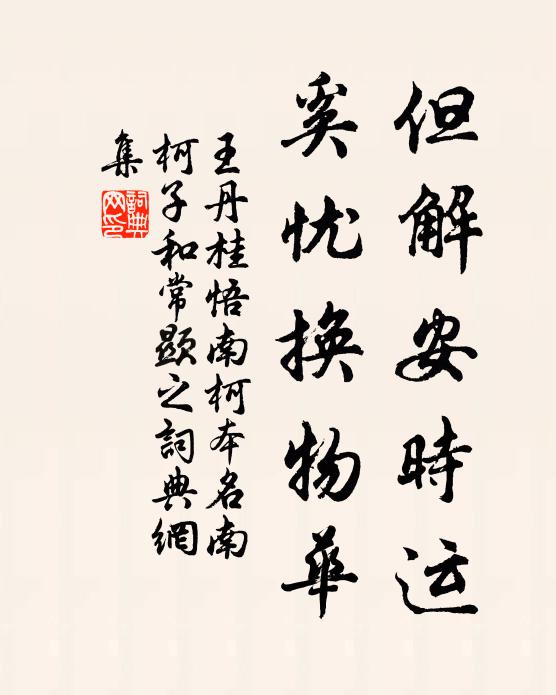 但解安時运
奚忧换物華
王丹桂悟南柯本名南
柯子和常顯之詞典網
集
詞典网印